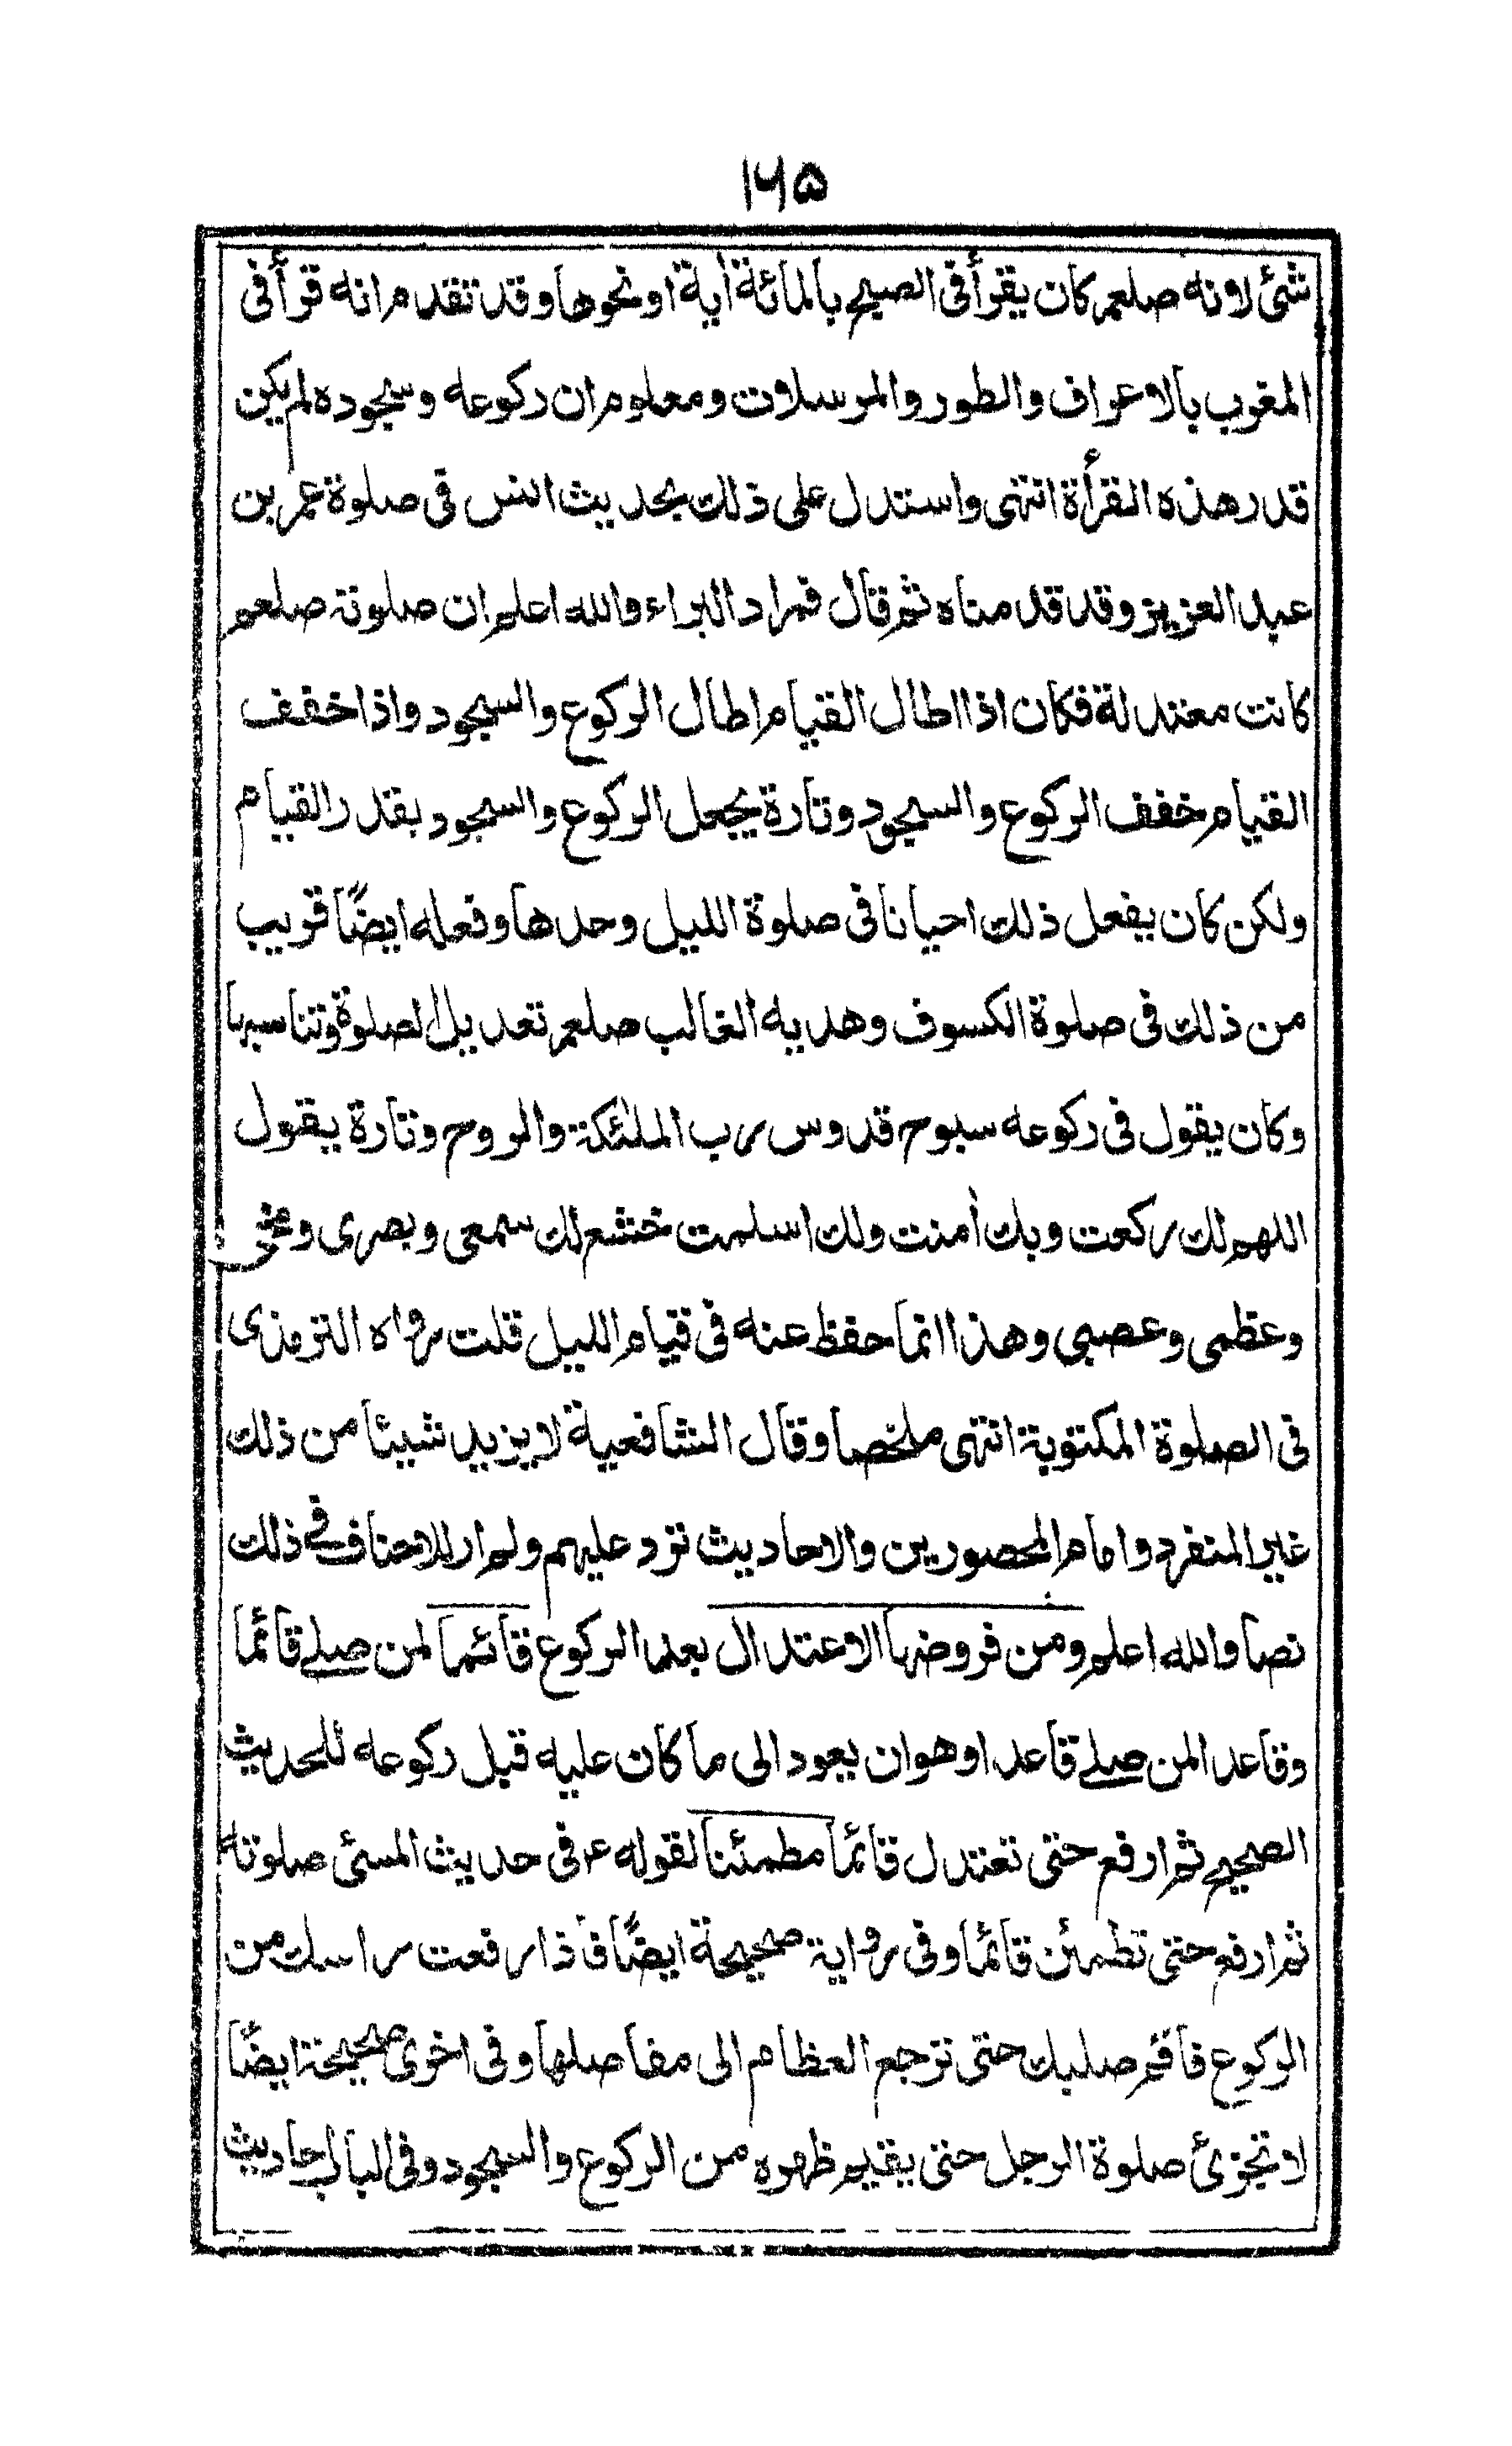 ۱۶۵
شئ لانه صلعم كان يقرأ فى الصبح بالمائة أية او نحوها وقد تقدم انه قرأ فى
المغرب بالاعراف والطور والمرسلات ومعلوم ان ركوعه وسجوده لم يكن
قدر هذه القرأة انتهى واستدل على ذلك بحديث انس فى صلوة عمر بن
عبد العزيز وقد قدمناه ثم قال فمراد البراء والله اعلم ان صلوته صلعم
كانت معتدلة فكان اذا اطال القيام اطال الركوع والسجود واذا خفف
القيام خفف الركوع والسجود وتارة يجعل الركوع والسجود بقدر القيام
ولكن كان يفعل ذلك احيانا فى صلوة الليل وحدها وفعله ايضًا قريب
من ذلك فى صلوة الكسوف وهديه الغالب صلعم تعديل الصلوة وتناسبها
وكان يقول فى ركوعه سبوح قدوس رب الملئكة والروح وتارة يقول
اللهم لك ركعت وبك أمنت ولك اسلمت خشع لك سمعى وبصرى ومخى
وعظمى وعصبى وهذا انما حفظ عنه فى قيام الليل قلت رواه الترمذى
فى الصلوة المكتوبة انتهى ملخصا وقال الشافعية لا يزيد شيئا من ذلك
غير المنفرد وامام المحصورين والاحاديث ترد عليهم ولم ار للاحناف فے ذلك
نصا والله اعلم ومن فروضها الاعتدال بعد الركوع قائما لمن صلے قائما
وقاعدا لمن صلے قاعدا وهو ان يعود الى ما كان عليه قبل ركوعه للحديث
الصحيح ثم ارفع حتى تعتدل قائما مطمئنا لقوله ء فى حديث المسئ صلوته
ثم ارفع حتى تطمئن قائما وفى رواية صحيحة ايضًا فاذا رفعت راسك من
الركوع فاقم صلبك حتى ترجع العظام الى مفاصلها وفى اخرى صحيحة ايضًا
لا تجزئ صلوة الرجل حتى يقيم ظهره من الركوع والسجود وفى الباب احاديث